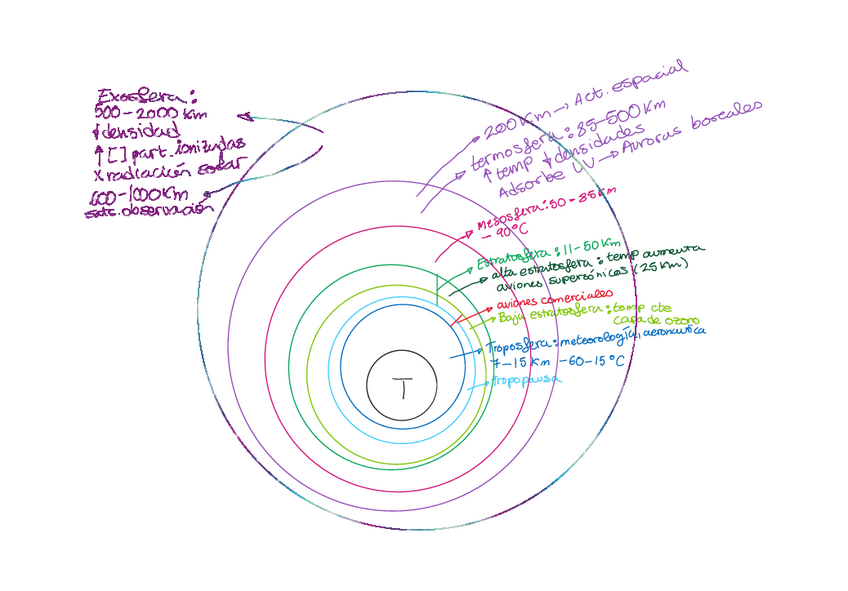 Exosfera:
500-2000 Km
↓densidad
↑[] part.ionizadas
x radiación solar
600-1000Km
sats.observación
200Km→ Act. espacial
termosfera: 85-500Km
↑temp ↓densidades
Adsorbe UV→Auroras boreales
Mesosfera:50-85Km
-90°C
Estratosfera: 11-50Km
alta estratosfera: temp aumenta
aviones supersónicas (25Km)
aviones comerciales
Baja estratosfera: temp cte
capa de ozono
Troposfera: meteorología, aeronautica
7-15 Km -60-15°C
tropopausa
T